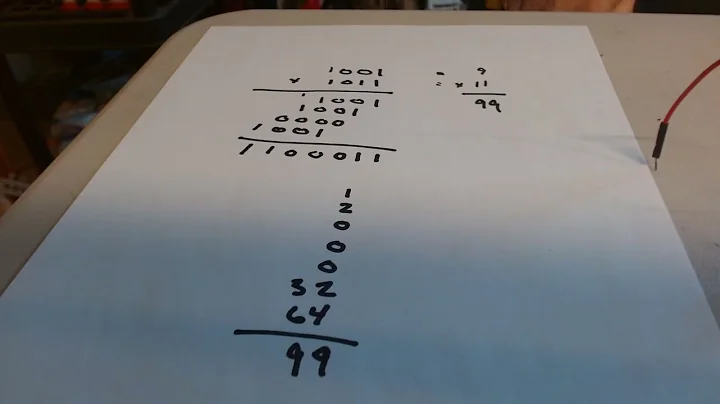 1001 = 9
× 1011 = × 11
11001 99
1001
0000
1001
1100011
1
2
0
0
0
32
64
99